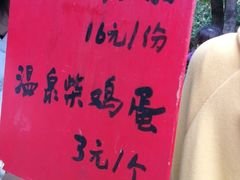 16元1份
温泉柴鸡蛋
3元1个